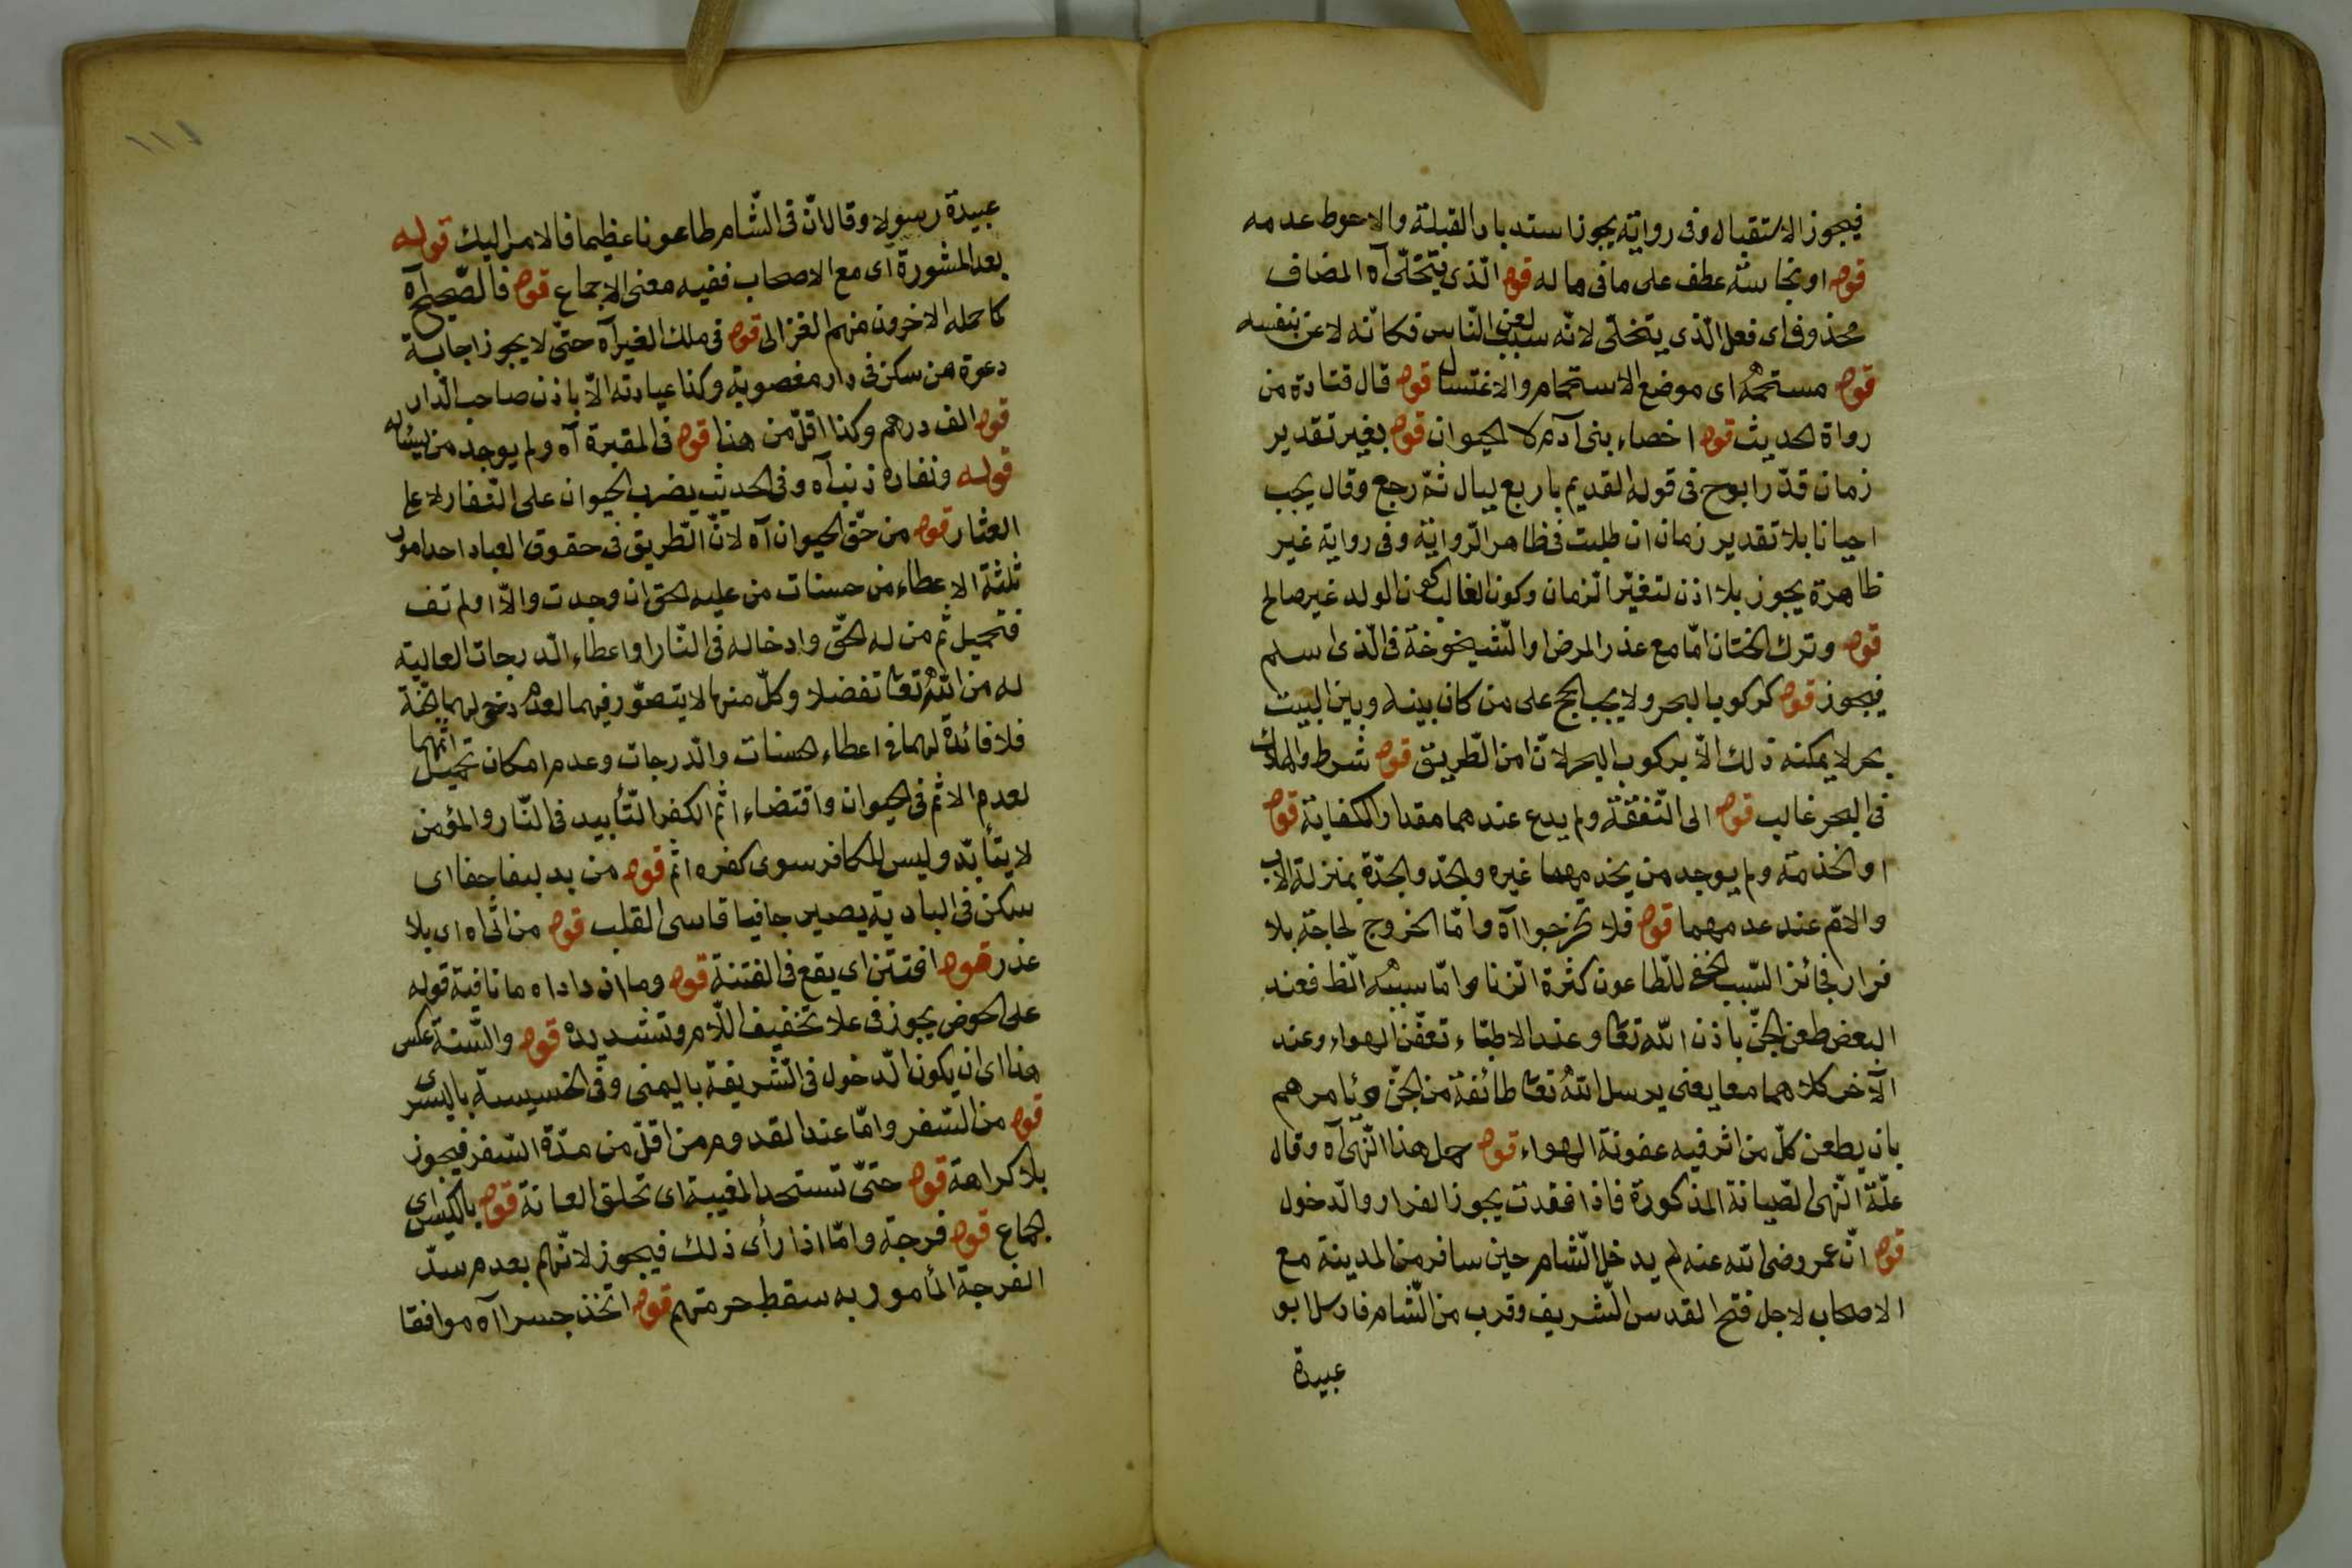 فيجوز الاستقبال وفى رواية يجوز استدبار القبلة والاحوط عدمه
قوله او نجاسته عطف على ما فى ما له قوله الذى يتخلّى آه المضاف
محذوف اى فعل الّذى يتخلّى لانّه سبب لعن النّاس فكانّه لاعن بنفسه
قوله مستحمّه اى موضع الاستحمام والاغتسال قوله قال قتادة من
رواة الحديث قوله اخصاء بنى آدم لا الحيوان قوله بغير تقدير
زمان قدّر ابوح فى قوله القديم باربع ليال ثمّ رجع وقال يجب
احيانا بلا تقدير زمان ان طلبت فى ظاهر الرّواية وفى رواية غير
ظاهرة يجوز بلا اذن لتغيّر الزمان وكون الغالب كون الولد غير صالح
قوله وترك الختان امّا مع عذر المرض او الشّيخوخة فى الّذى اسلم
فيجوز قوله كركوب البحر ولا يجب الحج على من كان بينه وبين البيت
بحر لا يمكنه ذلك الّا بركوب البحر لانّ امن الطّريق قوله شرط والهلاك
فى البحر غالب قوله الى النّفقة ولم يدع عندهما مقدار الكفاية قوله
او الخدمة ولم يوجد من يخدمهما غيره والجدّ والجدّة بمنزلة الاب
والامّ عند عدمهما قوله فلا تخرجوا آه وامّا الخروج لحاجة بلا
فرار فجائز السّبب الخفى للطّاعون كثرة الزنا وامّا سببه الظ فعند
البعض طعن الجنّ باذن اللّه تعا وعند الاطبّاء تعفّن الهواء وعند
الآخر كلاهما معا يعنى يرسل اللّه تعا طائفة من الجنّ ويأمرهم
بان يطعن كلّ من اثر فيه عفونة الهواء قوله حمل هذا النّهى آه وقال
علّة النّهى الصّيانة المذكورة فاذا فقدت يجوز الفرار والدّخول
قوله انّ عمر رضى اللّه عنه لم يدخل الشّام حين سافر من المدينة مع
الاصحاب لاجل فتح القدس الشّريف وقرب من الشّام فارسل ابو
عبيدة
١١١
عبيدة رسولا وقال انّ فى الشّام طاعونا عظيما فالامر اليك قوله
بعد المشورة اى مع الاصحاب ففيه معنى الاجماع قوله فالصّحيح آه
كما حمله الاخرون منهم الغزالى قوله فى ملك الغير آه حتّى لا يجوز اجابة
دعوة من سكن فى دار مغصوبة وكذا عيادته الّا باذن صاحب الدّار
قوله الف درهم وكذا اقلّ من هذا قوله فى المقبرة آه ولم يوجد من
قوله ونفاره ذنب آه وفى الحديث يضرب الحيوان على النّفار لا على
العثار قوله من حقّ الحيوان آه لانّ الطّريق فى حقوق العباد احد امور
ثلثة الاعطاء من حسنات من عليه الحق ان وجدت والّا او لم تف
فتحميل ثم من له الحقّ وادخاله فى النّار او اعطاء الدّرجات العالية
له من اللّه تعا تفضلا وكلّ منها لا يتصوّر فيهما لعدم دخولهما الجنّة
فلا فائدة لهما فى اعطاء الحسنات والدّرجات وعدم امكان تحميل اثمهما
لعدم الاثم فى الحيوان واقتضاء اثم الكفر التّأبيد فى النّار والمؤمن
لا يتأبّد وليس للكافر سوى كفره اثم قوله من بد بيفا جفا اى
سكن فى البادية يصير جافيا قاسى القلب قوله من اتاه اى بلا
عذر قوله افتتن اى يقع فى الفتنة قوله وما ازداد آه ما نافية قوله
على الحوض يجوز فى علا تخفيف اللّام وتشديده قوله والسّنة عكس
هذا اى ان يكون الدّخول فى الشّريفة باليمنى وفى الخسيسة باليسرى
قوله من السّفر وامّا عند القدوم من اقلّ من مدّة السّفر فيجوز
بلا كراهة قوله حتّى تستحد المغيبة اى تحلق العانة قوله بالكيس اى
الجماع قوله فرجة وامّا اذا رأى ذلك فيجوز لانّهم بعدم سدّ
الفرجة المأمور به سقط حرمتهم قوله اتّخذ جسرا آه موافقا